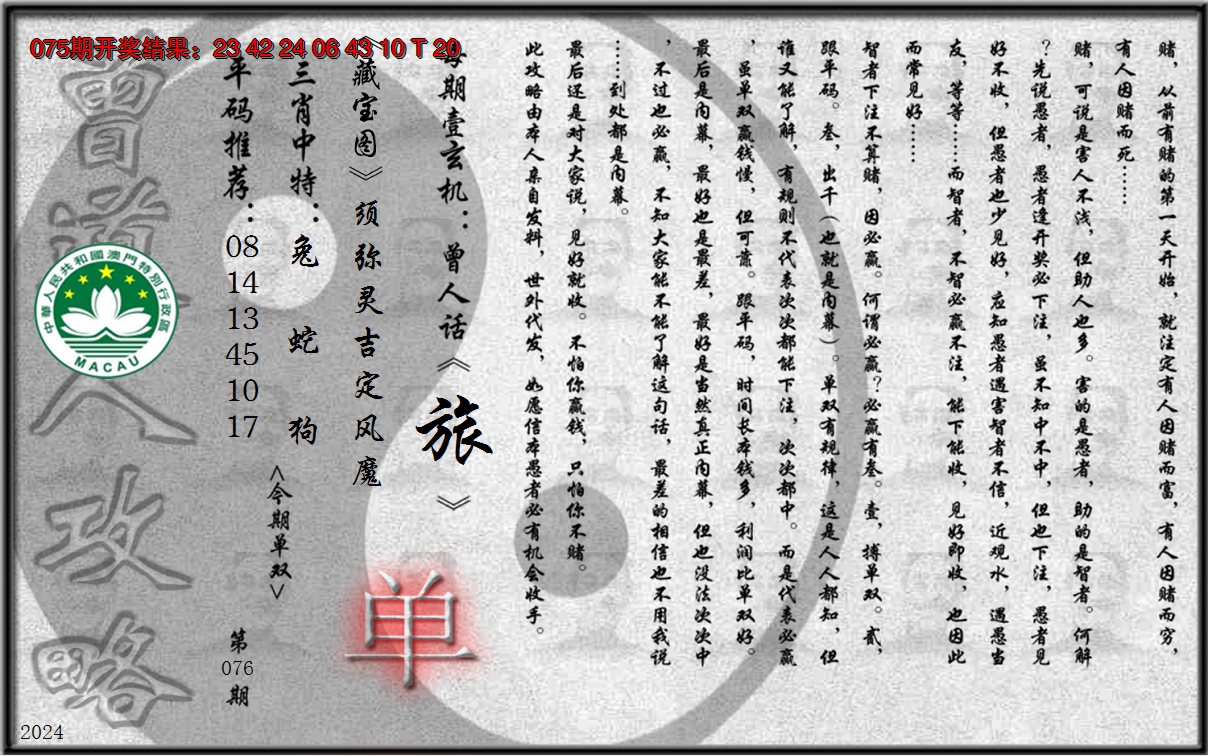 075期开奖结果：23 42 24 06 43 10 T 20
赌，从前有赌的第一天开始，就注定有人因赌而富，有人因赌而穷，
有人因赌而死……
赌，可说是害人不浅，但助人也多。害的是愚者，助的是智者。何解
？先说愚者，愚者逢开奖必下注，虽不知中不中，但也下注，愚者见
好不收，但愚者也少见好，应知愚者遇害智者不信，近观水，遇愚当
友，等等……而智者，不智必赢不注，能下能收，见好即收，也因此
而常见好……
智者下注不算赌，因必赢。何谓必赢？必赢有叁。壹，搏单双。贰，
跟平码。叁，出千（也就是内幕）。单双有规律，这是人人都知，但
谁又能了解，有规则不代表次次都能下注，次次都中。而是代表必赢
，虽单双赢钱慢，但可靠。跟平码，时间长本钱多，利润比单双好。
最后是内幕，最好也是最差，最好是当然真正内幕，但也没法次次中
，不过也必赢，不知大家能不能了解这句话，最差的相信也不用我说
……到处都是内幕。
最后还是对大家说，见好就收。不怕你赢钱，只怕你不赌。
此攻略由本人亲自发料，世外代发，如愿信本愚者必有机会收手。
每期壹玄机：曾人话《旅》
《藏宝图》须弥灵吉定风魔
单
三肖中特：兔 蛇 狗
<今期单双>
平码推荐：
08
14
13
45
10
17
第
076
期
曾道人攻略
中華人民共和國澳門特別行政區
MACAU
2024